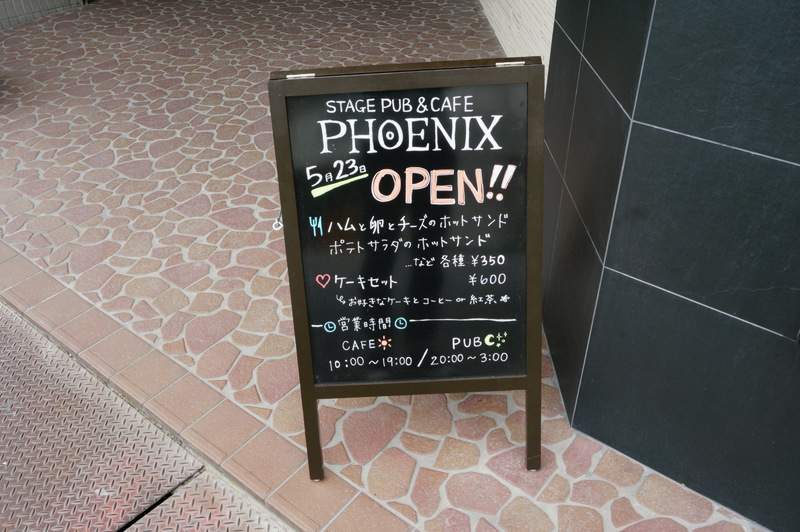 STAGE PUB & CAFE
PHOENIX
5月23日
OPEN!!
ハムと卵とチーズのホットサンド
ポテトサラダのホットサンド
...など 各種 ¥350
ケーキセット ¥600
お好きなケーキとコーヒー or 紅茶
営業時間
CAFE PUB
10:00〜19:00 / 20:00〜3:00